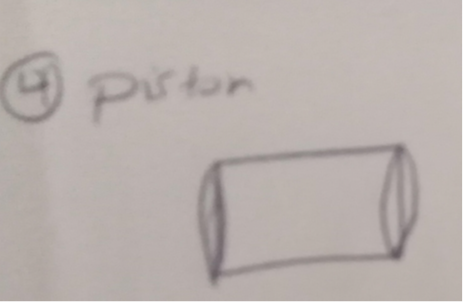 ④ piston